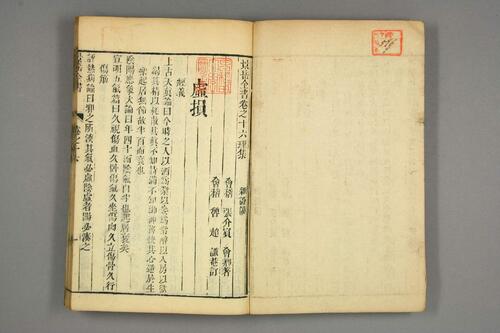 景岳全書卷之十六理集
會稽 張介賓 會卿著
會稽 魯超 謙菴訂
虛損
經義
上古天真論曰今時之人以酒為漿以妄為常醉以入房以欲
竭其精以耗散其真不知持滿不知御神務快其心逆於生
樂起居無節故半百而衰也
陰陽應象大論曰年四十而陰氣自半也起居衰矣
宣明五氣篇曰久視傷血久臥傷氣久坐傷肉久立傷骨久行
傷筋
評熱病論曰邪之所湊其氣必虛陰虛者陽必湊之